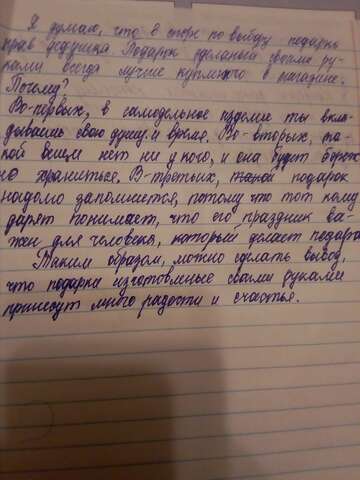 Я думаю, что в споре по выбору подарка
прав дедушка. Подарок сделаный своими ру-
ками всегда лучше купленого в магазине.
Почему?
Во-первых, в самодельное изделие ты вкла-
дываешь свою душу и время. Во-вторых, та-
кой вещи нет ни у кого, и она будет береж-
но храниться. В-третьих, такой подарок
надолго запомнется, потому что тот кому
дарят понимает, что его праздник ва-
жен для человека, который делает подарок
Таким образом, можно сделать вывод,
что подарки изготовленые своими руками
принесут много радости и счастья.